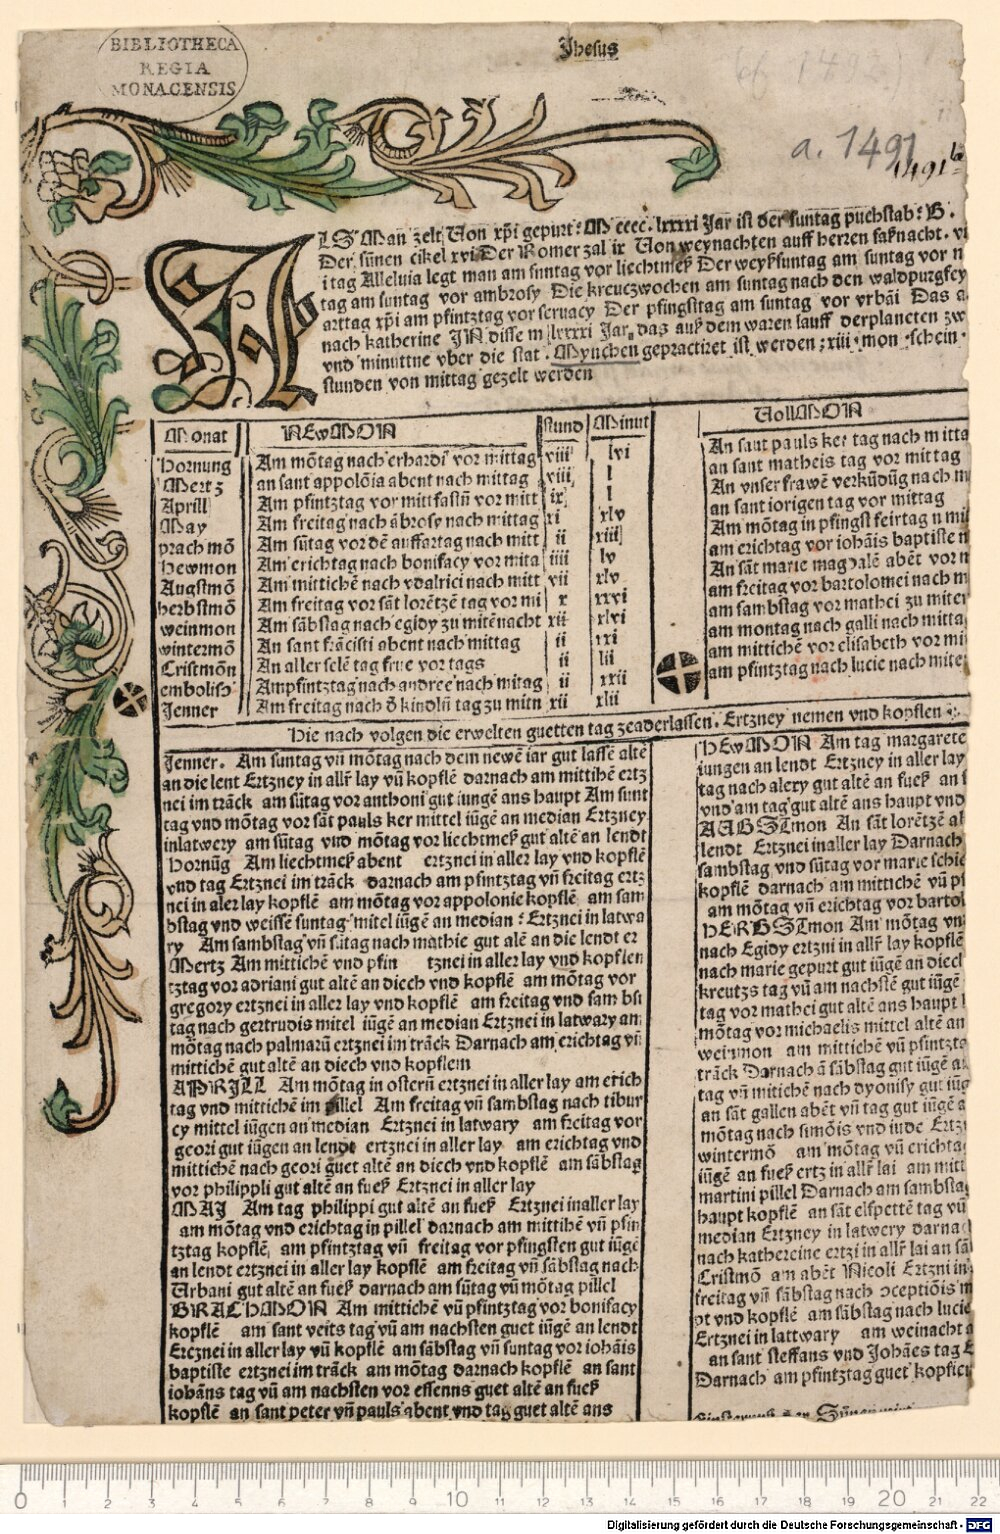 BIBLIOTHECA
REGIA
MONACENSIS
Jhesus
a. 1491
1491
ALS Man zelt Von xp̄i gepurt: M cccc. lxxxxi Jar ist der suntag puchstab: B.
Der sūnen cikel xvi Der Romer zal ix Von weynachten auff herren faßnacht. vi
i tag Alleluia legt man am suntag vor liechtmeß Der weyßsuntag am suntag vor n
tag am suntag vor ambrosy Die kreuczwochen am suntag nach den waldpurgsey
arttag xp̄i am pfintztag vor seruacy Der pfingstag am suntag vor vrbāi Das a
nach katherine JN disse m lxxxxi Jar, das auß dem waren lauff der planeten zw
vnd minuttne vber die stat. Mynchen gepracticet ist werden; xiii. mon. schein.
stunden von mittag gezelt werden
Monat NEWMON Stund Minut VollMON
Hornung Am mōtag nach erhardi vor mittag viii lvi An sant pauls ker tag nach mitta
Mertz an sant appolōia abent nach mittag viii l an sant matheis tag vor mittag
Aprill Am pfintztag vor mittfastn̄ vor mitt ix l An vnser frawē verkūdūg nach m
May Am freitag nach ābrosy nach mittag xi xlv an sant iorigen tag vor mittag
prach mō Am sūtag vor dē auffartag nach mitt ii xiii Am mōtag in pfingst feirtag n mit
hewmon Am erichtag nach bonifacy vor mita iiii lv am erichtag vor iohāis baptiste n
Augstmō Am mittichē nach vdalrici nach mitt vii xlv An sāt marie magdalē abēt vor n
herbstmō Am freitag vor sāt lorētzē tag vor mi x xxvi am freitag vor bartolomei nach m
weinmon Am sābstag nach egidy zu mitēnacht xii xlvi am sambstag vor mathei zu miter
wintermō An sant frācisci abent nach mittag ii xxi am montag nach galli nach mitta
Cristmōn An aller selē tag frue vor tags ii lii am mittichē vor elisabeth vor mi
embolish Am pfintztag nach andree nach mitag ii xxii am pfintztag nach lucie nach mite
Jenner Am freitag nach d̄ kindlū tag zu mitn xii xlii
Hie nach volgen die erwelten guetten tag zeaderlassen. Ertzney nemen vnd kopflen
Jenner. Am suntag vn̄ mōtag nach dem newē iar gut lassē altē
an die lent Ertzney in allr̄ lay vn̄ kopflē darnach am mittihē ertz
nei im trāck am sūtag vor anthoni gut iungē ans haupt Am sunt
tag vnd mōtag vor sāt pauls ker mittel iūgē an median Ertzney
in latwery am sūtag vnd mōtag vor liechtmeß gut altē an lendt
Hornūg Am liechtmeß abent ertznei in aller lay vnd kopflē
vnd tag Ertznei im trāck darnach am pfintztag vn̄ freitag ertz
nei in aler lay kopflē am mōtag vor appolonie kopflē am sam
bstag vnd weissē suntag mitel iūgē an median: Ertznei in latwa
ry Am sambstag vn̄ sūtag nach mathie gut alē an die lendt er
Mertz Am mittichē vnd pfin tznei in aller lay vnd kopflen
tztag vor adriani gut altē an diech vnd kopflē am mōtag vor
gregory ertznei in aller lay vnd kopflē am freitag vnd sam bst
tag nach gertrudis mitel iūgē an median Ertznei in latwary am
mōtag nach palmarū ertznei im trāck Darnach am erichtag vn̄
mittichē gut altē an diech vnd kopflem
APRILL Am mōtag in ostern̄ ertznei in aller lay am erich
tag vnd mittichē im pillel Am freitag vn̄ sambstag nach tibur
cy mittel iūgen an median Ertznei in latwary am freitag vor
geori gut iūgen an lendt ertznei in aller lay am erichtag vnd
mittichē nach geori guet altē an diech vnd kopflē am sābstag
vor philippi gut altē an fueß Ertznei in aller lay
MAJ Am tag philippi gut altē an fueß Ertznei in aller lay
am mōtag vnd erichtag in pillel darnach am mittihē vn̄ pfin
tztag kopflē, am pfintztag vn̄ freitag vor pfingsten gut iūgē
an lendt ertznei in aller lay kopflē am freitag vn̄ sābstag nach
Urbani gut altē an fueß darnach am sūtag vn̄ mōtag pillel
BRACHMON Am mittichē vn̄ pfintztag vor bonifacy
kopflē am sant veits tag vn̄ am nachsten guet iūgē an lendt
Ercznei in aller lay vn̄ kopflē am sābstag vn̄ suntag vor iohāis
baptiste ertznei im trāck am mōtag darnach kopflē an sant
iohāns tag vn̄ am nachsten vor essenns guet altē an fueß
kopflē an sant peter vn̄ pauls abent vnd tag guet altē ans
HEWMON Am tag margarete
iungen an lendt Ertzney in aller lay
tag nach alexy gut altē an fueß an s
vnd am tag gut altē ans haupt vnd
AAGSTmon An sāt lorētzē al
lendt Ertznei in aller lay Darnach
sambstag vnd sūtag vor marie schie
kopflē darnach am mittichē vn̄ pf
am mōtag vn̄ erichtag vor bartol
HERBSTmon Am mōtag vn
nach Egidy ertzni in allr̄ lay kopflē
nach marie gepurt gut iūgē an diecl
kreutzs tag vn̄ am nachstē gut iūgē
tag vor mathei gut altē ans haupt
mōtag vor michaelis mittel altē an
weinmon am mittichē vn̄ pfintzta
trāck Darnach ā sābstag gut iūgē a
tag vn̄ mitichē nach dyonisy gut iūg
an sāt gallen abēt vn̄ tag gut iūgē a
mōtag nach simōis vnd iude Ertz
wintermō am mōtag vn̄ erichta
iūgē an fueß ertz in allr̄ lai am mitt
martini pillel Darnach am sambsta
haupt kopflē an sāt elspettē tag vn̄
median Ertzney in latwery darnac
nach kathercine ertzi in allr̄ lai an sā
Cristmō am abēt Nicoli Ertzni in
freitag vn̄ sābstag nach ɔceptiōis m
pt vnd kopflē am sābstag nach lucie
Ertznei in lattwary am weinacht a
an sant steffans vnd Johāes tag E
Darnach am pfintztag guet kopflen
0 1 2 3 4 5 6 7 8 9 10 11 12 13 14 15 16 17 18 19 20 21 22
Digitalisierung gefördert durch die Deutsche Forschungsgemeinschaft - DFG